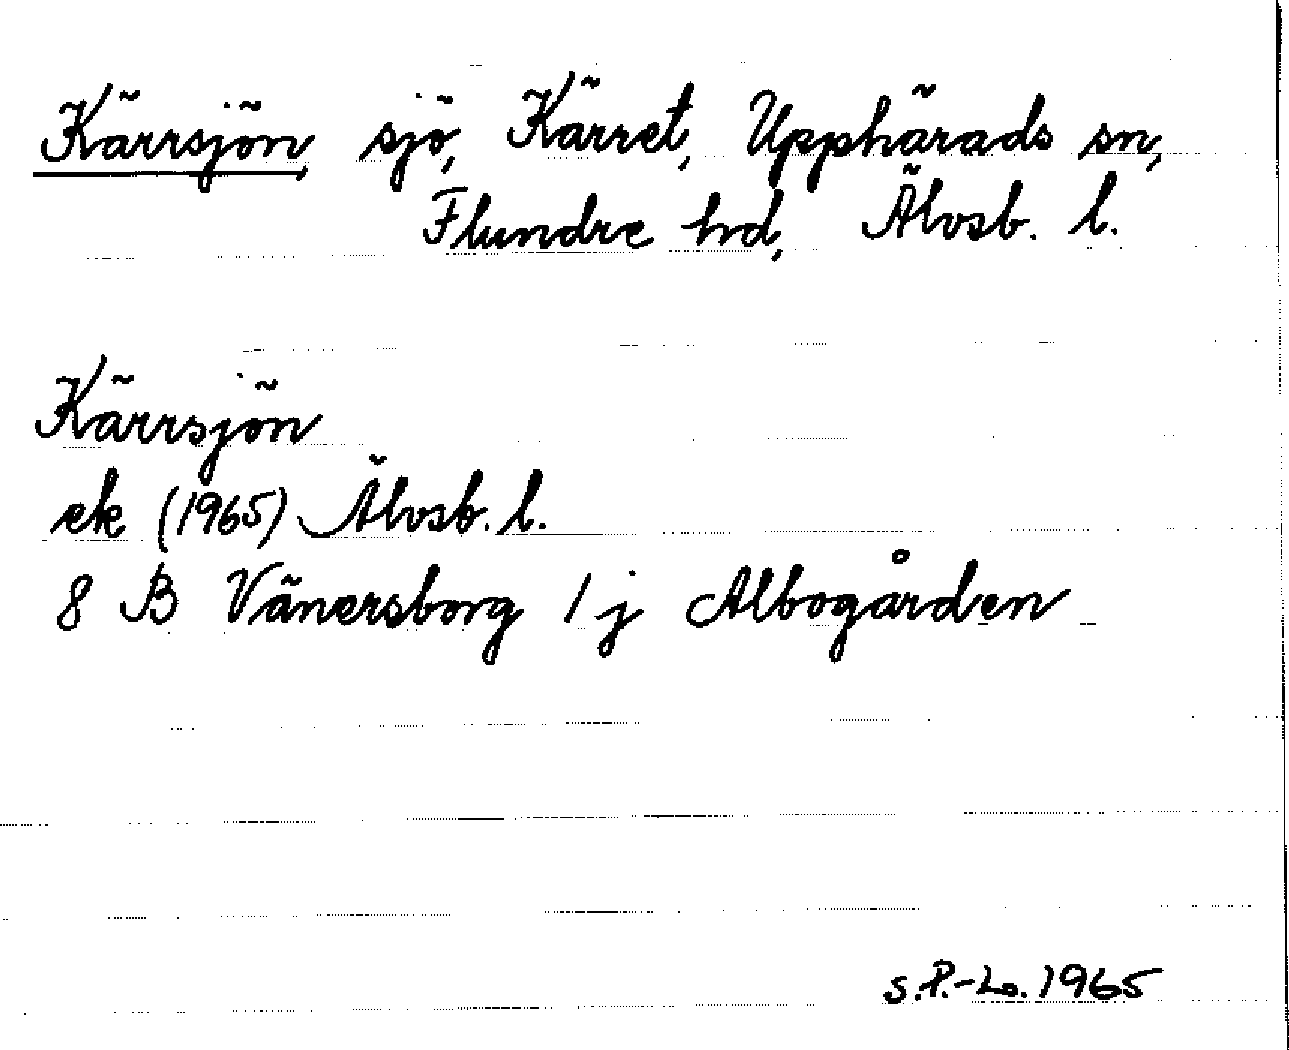 Kärrsjön, sjö, Kärret, Upphärads sn,
Flundre hd, Älvsb. l.
Kärrsjön
ek (1965) Älvsb. l.
8 B Vänersborg 1 j Albogården
S.P.-Lö. 1965